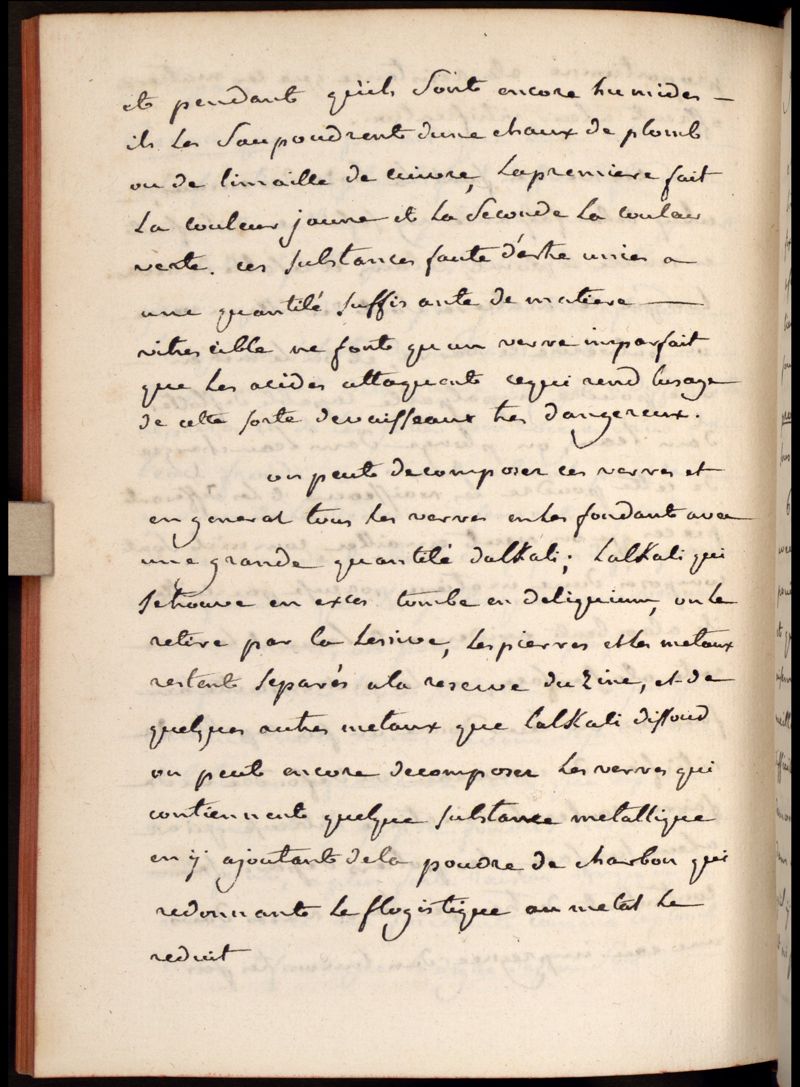 et pendant qu'ils sont encore humides —
ils les saupoudrent dune chaux de plomb
ou de limaille de cuivre, lapremiere fait
la couleur jaune et la seconde la couleur
verte. ces substances faute d'estre unies a
une quantité suffisante de matiere —
vitrescible ne font qu'un verre imparfait
que les acides attaquent cequi rend lusage
de cette sorte devaisseaux tres dangereux.
on peut decomposer ces verres et
en general tous les verres enles fondant avec
une grande quantité dalkali; lalkali qui
setrouve en exces tombe en deliquium, on le
retire par la lessive, les pierres et les metaux
restent separés ala reserve du zinc, et de
quelques autres metaux que lalkali dissoud
on peut encore decomposer les verres qui
contiennent quelque substance metallique
en y ajoutant dela poudre de charbon qui
redonnant le flogistique au metal le
reduit